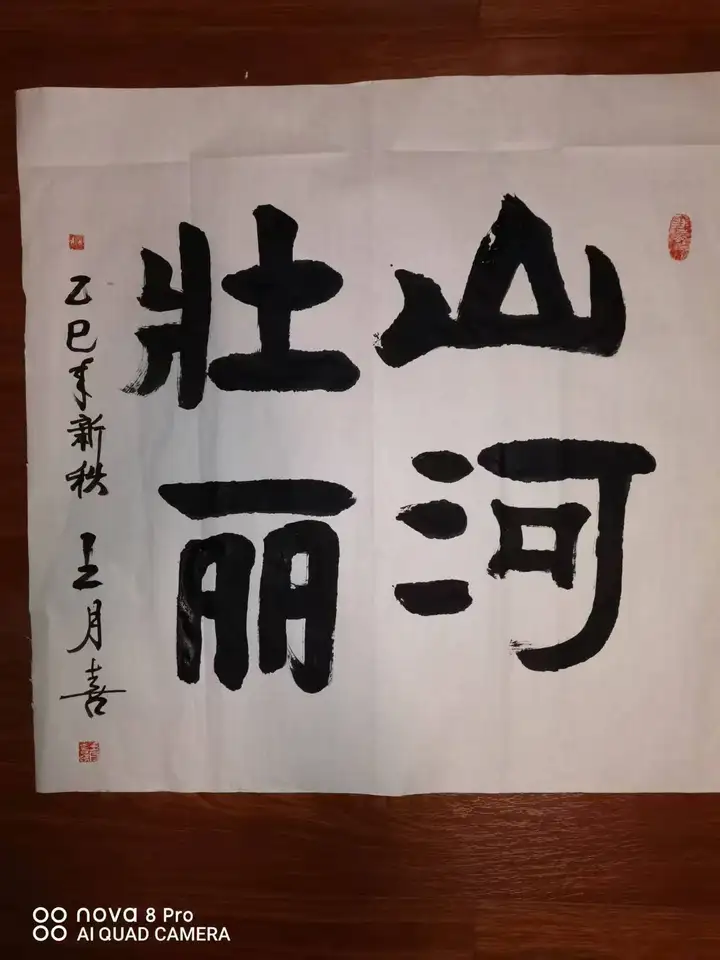 山河
壮丽
乙巳年新秋 王月喜
nova 8 Pro
AI QUAD CAMERA